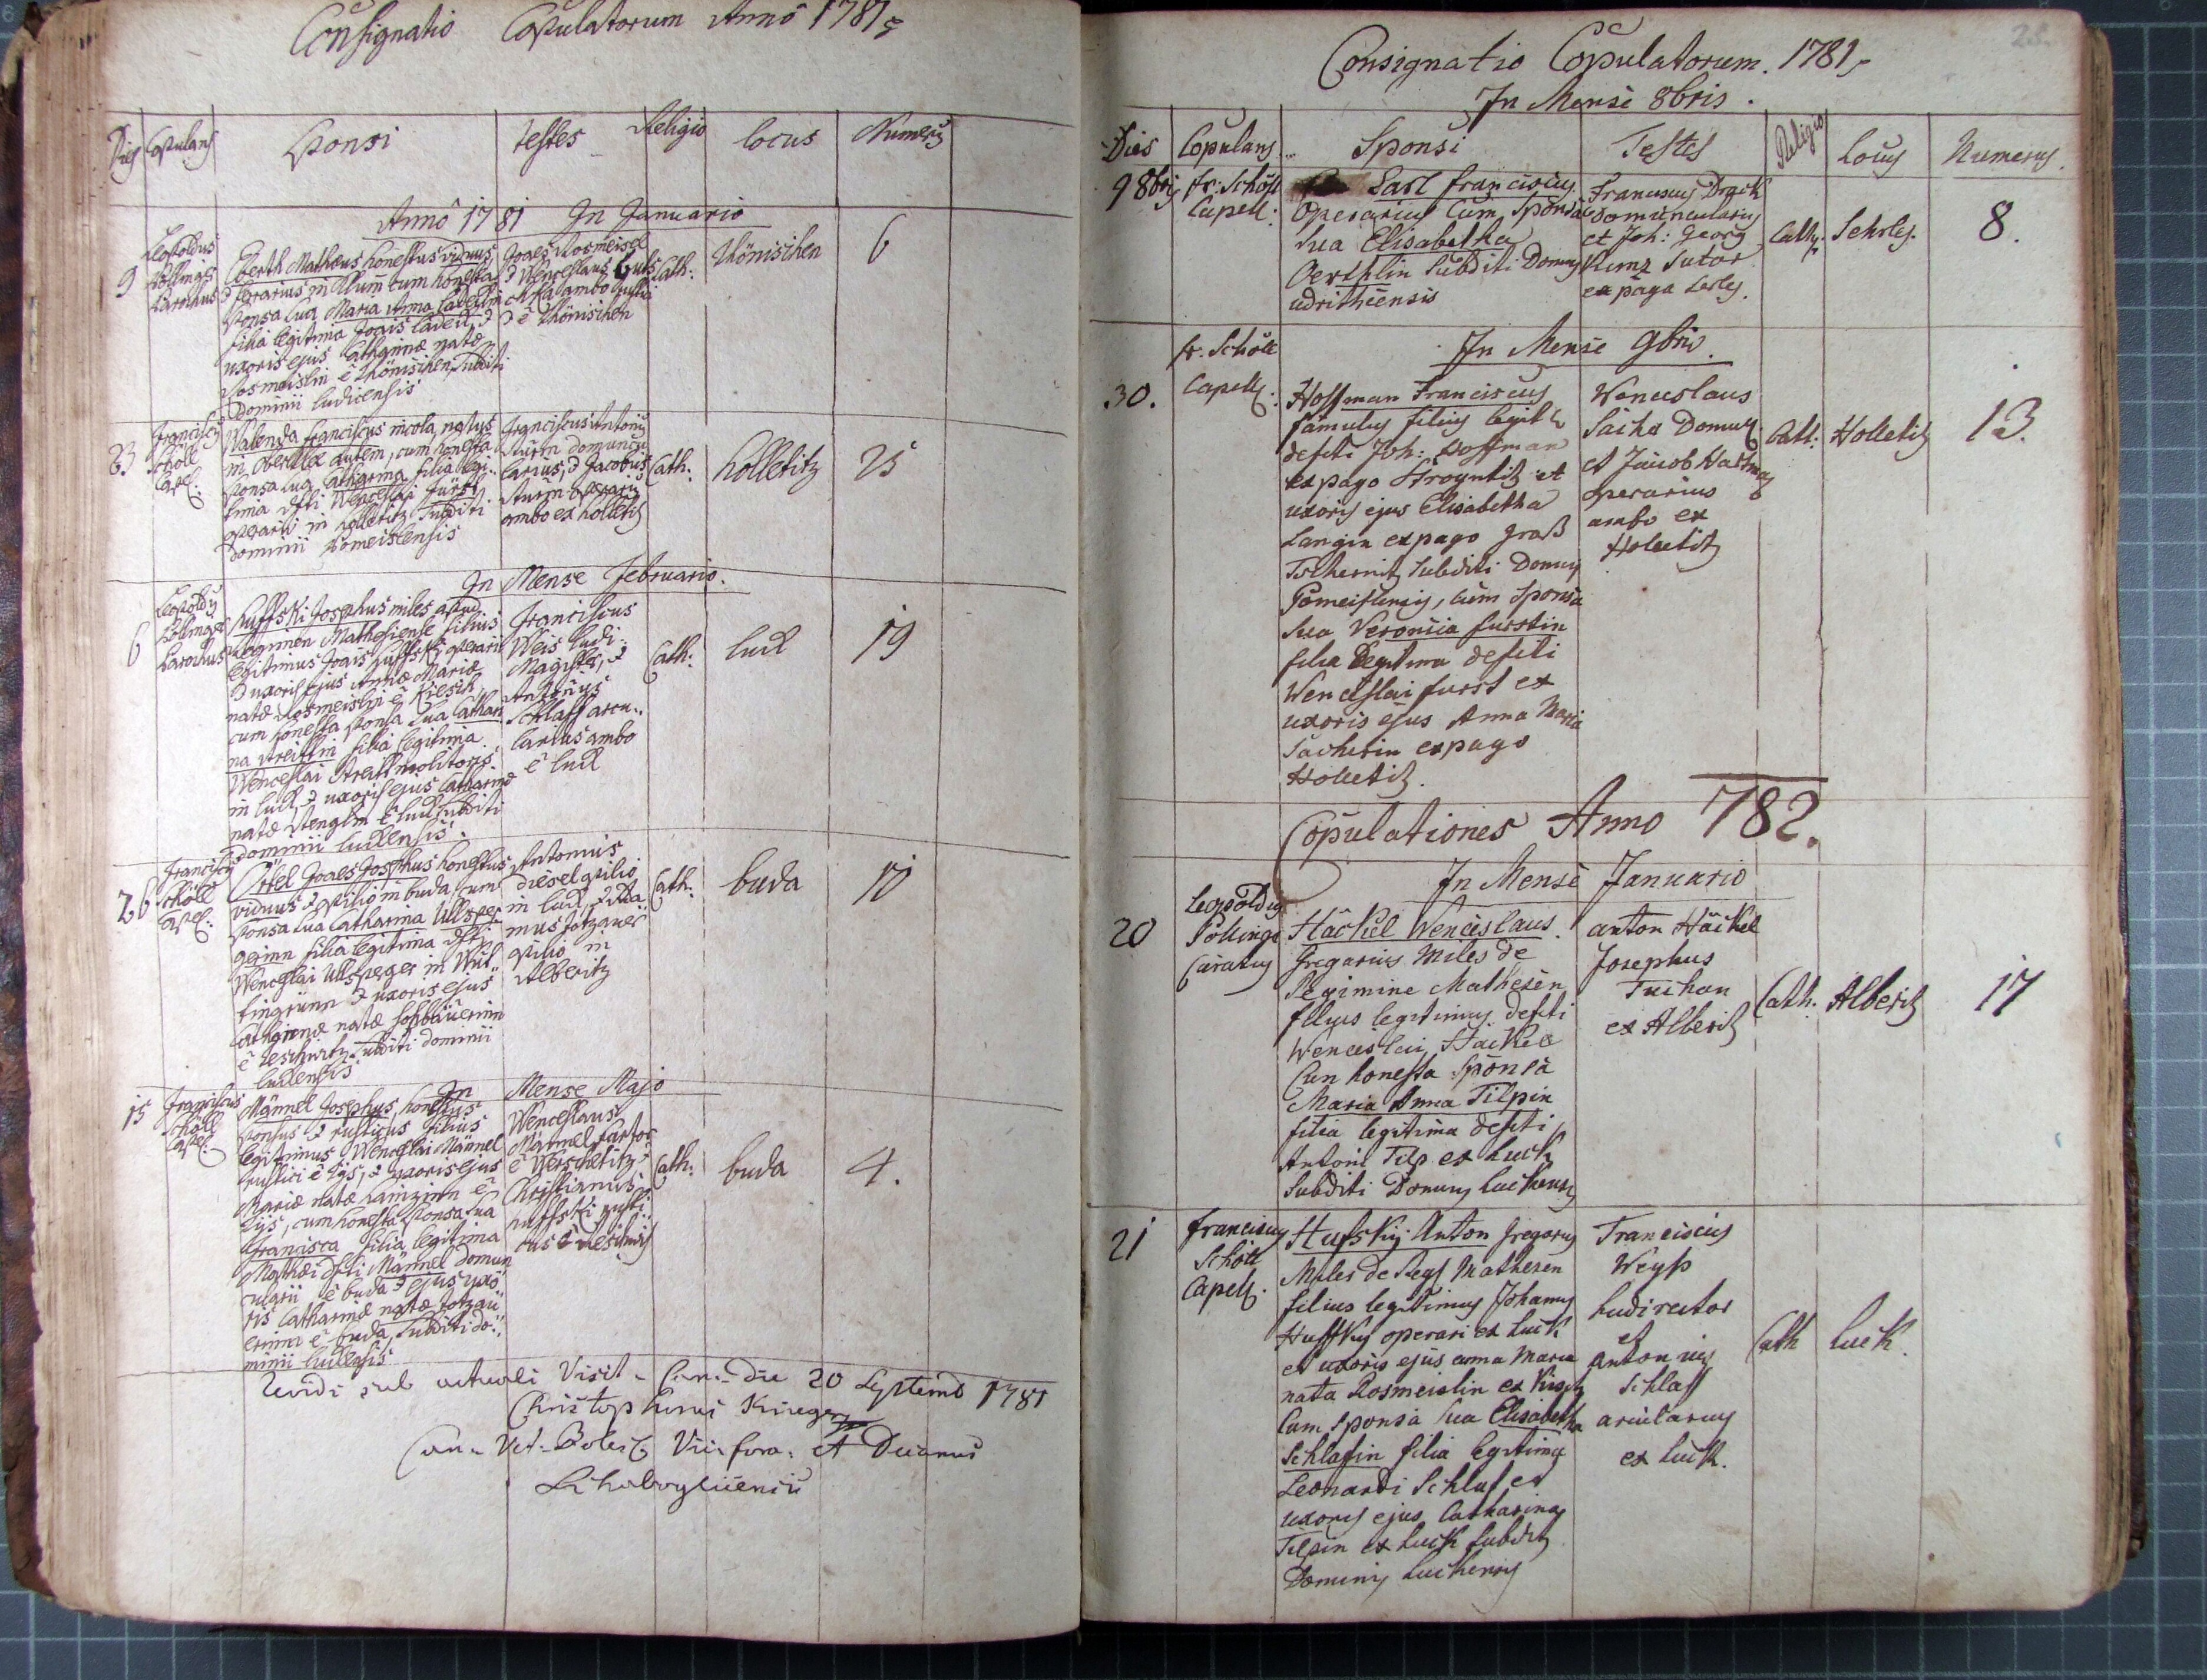 Consignatio Copulatorum Anno 1781
Dies Copulans Sponsi testes Religio locus Numerus
Anno 1781 In Januario
9
Leopoldus
Curatus
Eberth Mathæus honestus viduus,
cum honesta
Sponsa sua Maria Anna
filia legitima Joais
uxoris ejus Catharinæ natæ
Rosmeislin è Thönischen, subditi
Dominii ludicensis
Joaes Rosmeisel
& Wenceslaus
ambo
è Thönischen
Cath:
Thönischen
6
23
Franciscus
Schöll
Capel:
Walenda Franciscus incola, natus
in autem, cum honesta
sponsa sua Catharina filia legi-
tima dfti Wenceslai Fürst
operarii in Holletitz subditi
dominii Pomeislensis
Franciscus Antonius
Sturm domuncu-
larius, & Jacobus
Sturm operarius
ambo ex Holletitz
Cath:
Holletitz
25
In Mense Februario.
6
Leopoldus
Pöllinger
Curatus
Huffski Josephus miles apud
Regimen Mathesiense filius
legitimus Joais Huffski operarii
& uxoris ejus Annæ Mariæ
natæ Rosmeislin è Kiesch,
cum honesta sponsa sua Catha-
na Streittin filia legitima
Wenceslai Streitt molitoris
in luck & uxoris ejus Catharinæ
natæ Stenglin è luck subditi
dominii luckensis.
Franciscus
Weis ludi-
Magister, &
Antonius
Schlaff arcu-
larius ambo
è luck
Cath:
luck
19
26
Franciscus
Schöll
Capel:
Örtel Joaes Josephus honestus
viduus & opilio in buda, cum
sponsa sua Catharina Ullsper-
gerinn filia legitima dfti
Wenceslai Ullsperger in
tingrünn & uxoris ejus
Catharinæ natæ
è subditi dominii
luckensis
Antonius
diesel opilio
in luck, & Ada-
mus Totzauer
opilio in
Alberitz
Cath:
buda
10
In Mense Majo
15
Franciscus
Schöll
Capel:
Männel Josephus, honestus
sponsus & rusticus filius
legitimus Wenceslai Männel
rustici è Tys, & uxoris ejus
Mariæ natæ è
Tys, cum honesta sponsa sua
Francisca filia legitima
Mathæi dfti Männel domun-
cularii è buda & ejus uxo-
ris Catharinæ natæ Totzau-
erinn è buda, subditi do-
minii luckensis
Wenceslaus
Männel sartor
è Werscheditz &
Christianus
Huffski rusti-
cus è
Cath:
buda
4.
Uvidi sub actuali Visit. Can. die 20 Septemb 1781
Christophorus Krüger
Can. Vet. Boles. Vic. fora. et Decanus
Consignatio Copulatorum. 1781
In Mense 8bris.
Dies Copulans Sponsi Testes Religio Locus Numerus
9 8bris
Fr: Schöll
Capell:
Earl franciscus
Operarius Cum Sponsa
Sua Elisabetha
Oerthlin Subditi Domus
udritschensis
Franciscus Drack
Domuncularius
et Joh: Georg
Kunz Sutor
ex pago
Cath.
8.
In Mense 9bris.
30.
Fr. Schöll
Capell:
Hoffman Franciscus
famulus filius legit.
defti Joh: Hoffman
ex pago et
uxoris ejus Elisabetha
Langin ex pago Groß
Tschernitz Subditi Domus
Pomeislensis, cum Sponsa
Sua Veronica furstin
filia Legitima defti
Wenceslai furst et
uxoris ejus Anna Maria
Sacherin ex pago
Holletitz.
Wenceslaus
Sacha Domun.
et Jacob Hartman
operarius
ambo ex
Holletitz
Cath:
Holletitz
13.
Copulationes Anno 782.
In Mense Januario
20
Leopoldus
Pöllinger
Curatus
Häckel Wenceslaus.
Gregarius Miles de
Regimine Mathesen
filius legitimus defti
Wenceslai Häckel
Cum honesta Sponsa
Maria Anna Tilpin
filia legitima defti
Antoni Tilp ex Luck
Subditi Domus Luckensis
anton Häckel
Josephus
Tuchan
ex Alberitz
Cath.
Alberitz
17
21
Franciscus
Schöll
Capell.
Hufsky Anton Gregarius
Miles de Reg. Mathesen
filius legitimus Johannis
Huffky operari ex Luck
et uxoris ejus anna Maria
nata Rosmeislin ex Kisch
Cum Sponsa Sua Elisabetha
Schlafin filia legitima
Leonardi Schlaf et
uxoris ejus Catharina
Tilpin ex Luck subditi
Dominij Luckensis
Franciscus
Weyß
Ludirector
et
antonius
Schlaff
arcularius
ex Luck.
Cath
Luck.